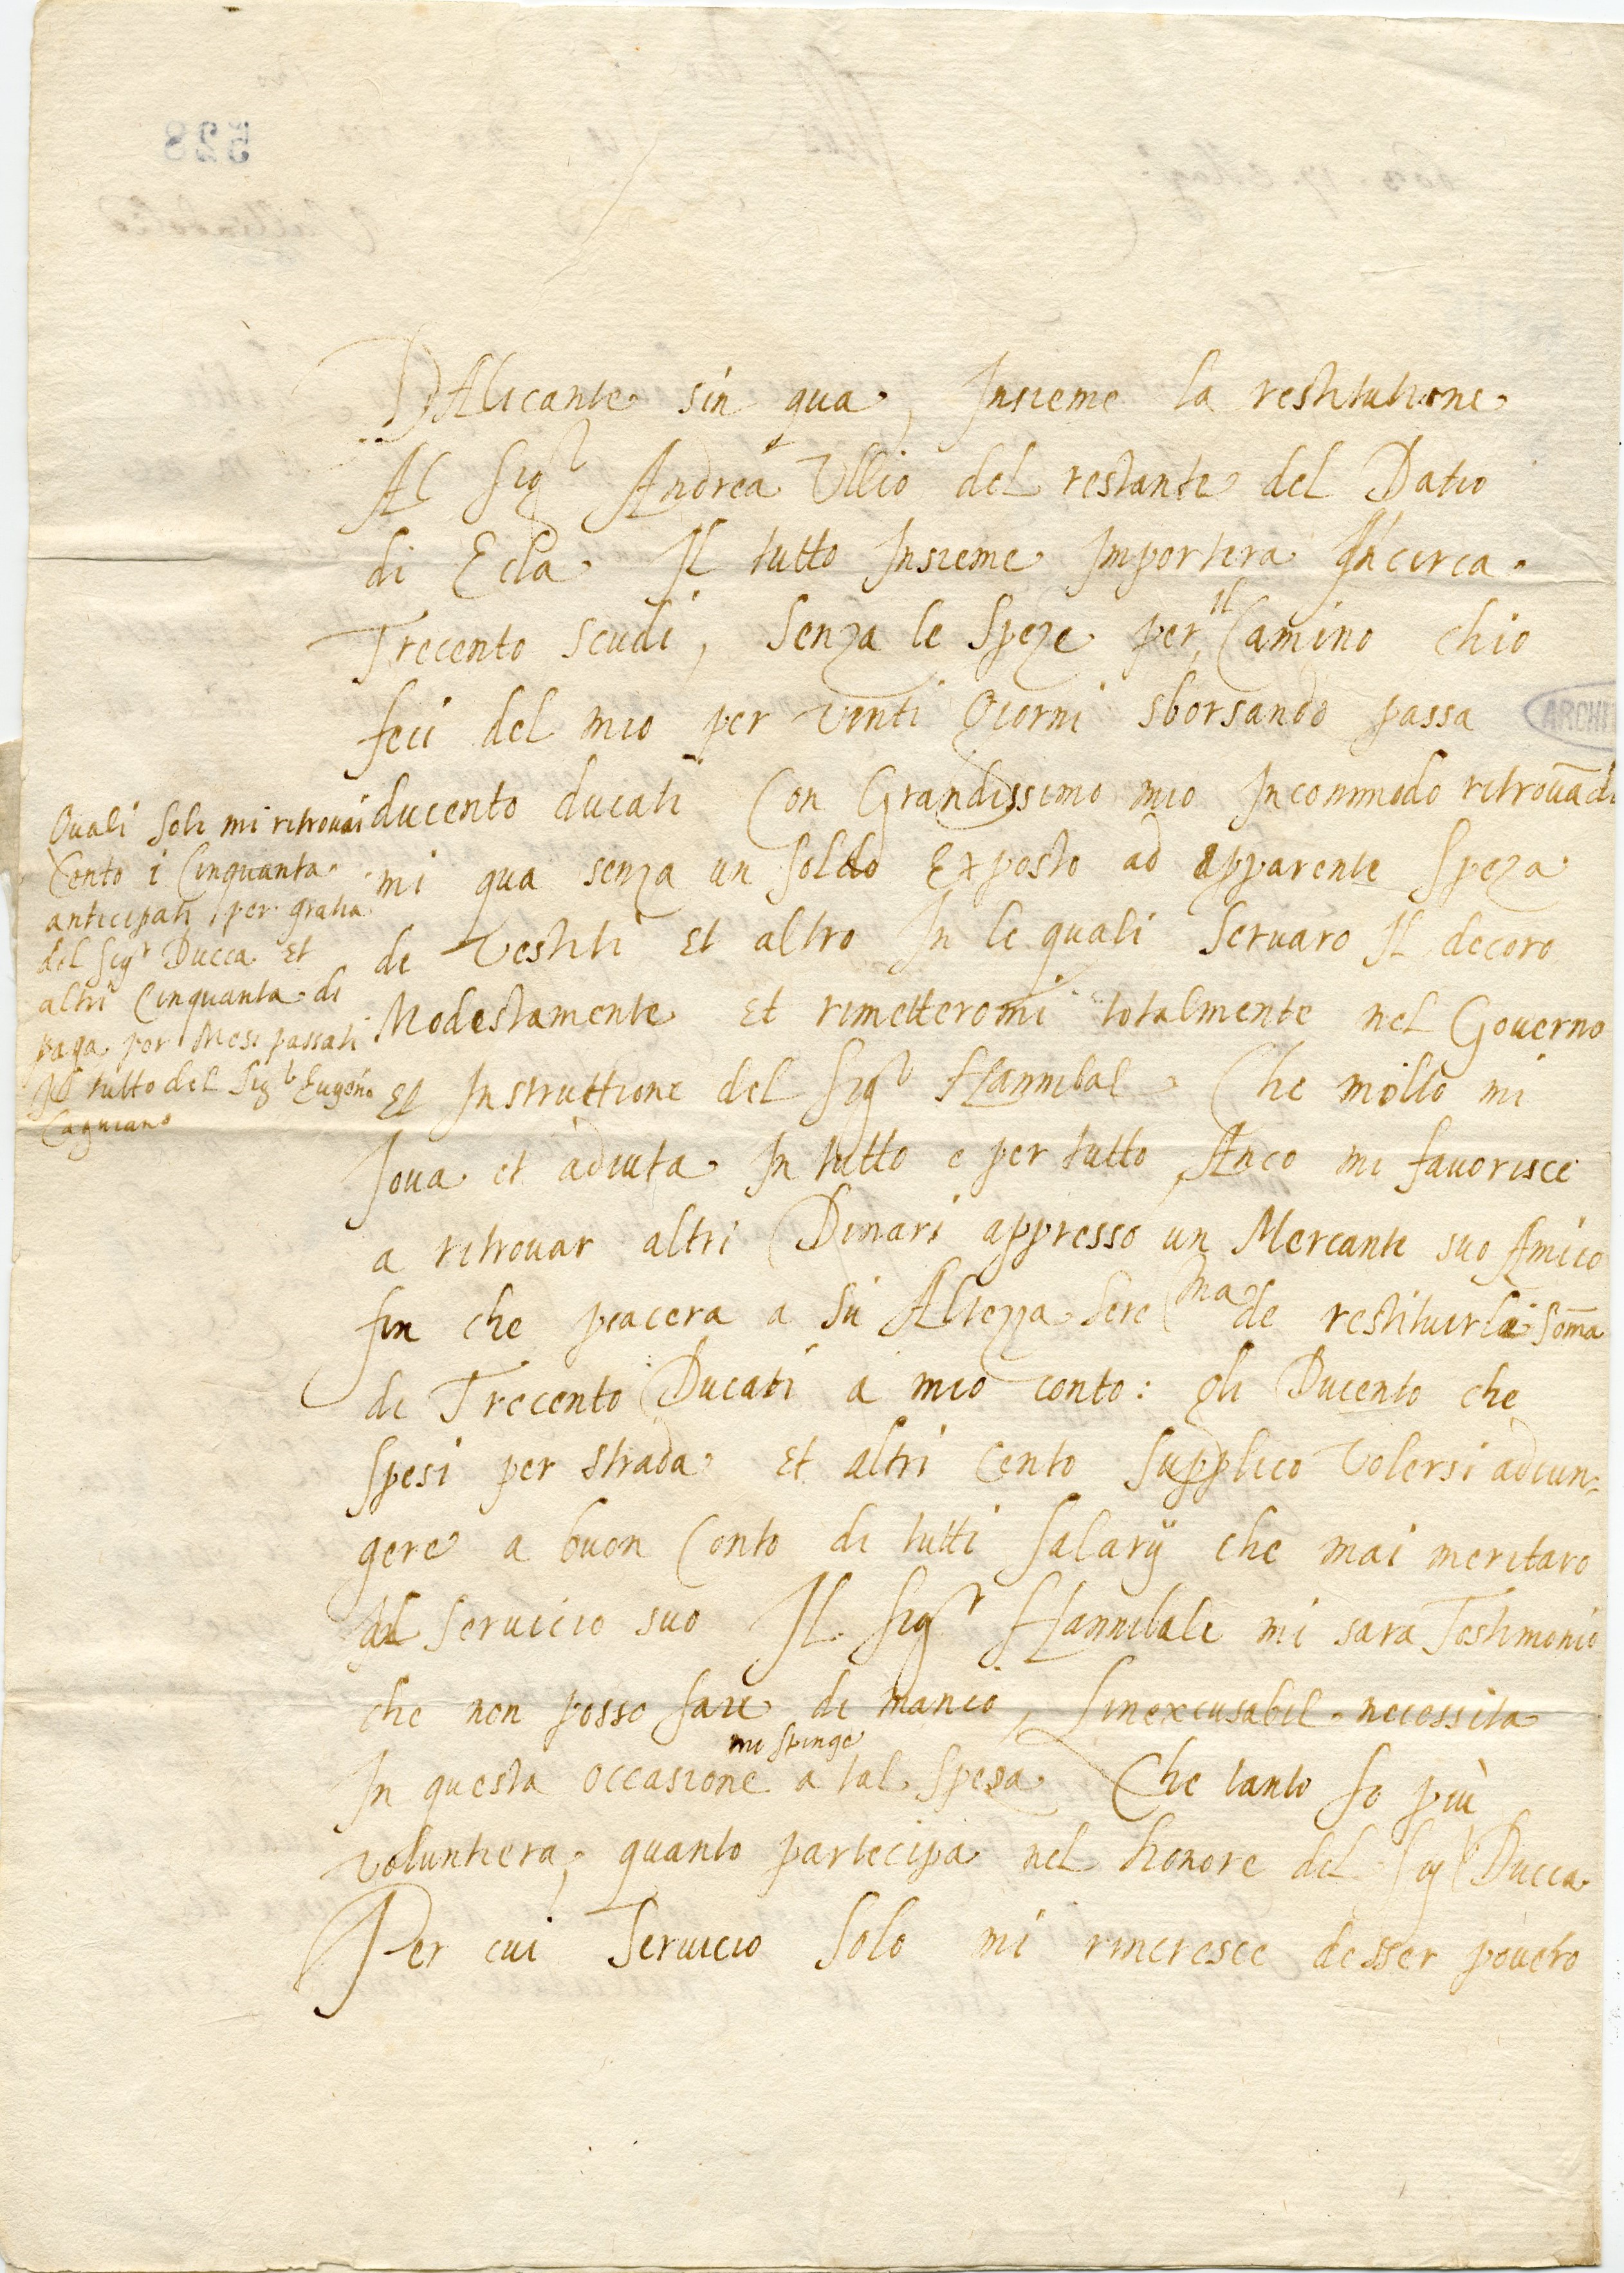 D'Alicante sin qua, Insieme la restitutione
Al Sigr Andrea Ullio del restante del Datio
di Ecla Il tutto Insieme Importera In circa
Trecento scudi, senza le Speze per il Camino chio
feci del mio per venti Giorni sborsando passa
ducento ducati Con Grandissimo mio Incommodo ritrovādo
mi qua senza un soldo Exposto ad apparente Speza
de Vestiti Et altro In le quali Servaro Il decoro
Modestamente Et rimetteromi totalmente nel Governo
Et Instruttione del Sigr Hannibal Che molto mi
Iova et adiuta In tutto e per tutto, Anco mi favorisce
a ritrovar altri Dinari appresso un Mercante suo Amico
fin che piacera a Su Altezza Serema de restituirla Soma
di Trecento Ducati a mio conto: gli Ducento che
Spesi per strada Et altri Cento Supplico Volersi adiun=
gere a buon Conto di tutti Salarij che mai meritaro
al Servicio suo Il Sigr Hannibale mi sara Testimonio
che non posso fare di manco, Linexcusabil necessita
In questa occasione mi spinge a tal Speza Che tanto fo più
voluntiera, quanto partecipa nel honore del Sigr Ducca
Per cui Servicio Solo mi rincresce desser povero
Quali Soli mi ritrovai
Cento i Cinquanta
anticipati per gratia
del Sigr Ducca Et
altri Cinquanta di
paga per Mesi passati
Il tutto del Sigr Eugenio
Cagniano
528
ARCHI